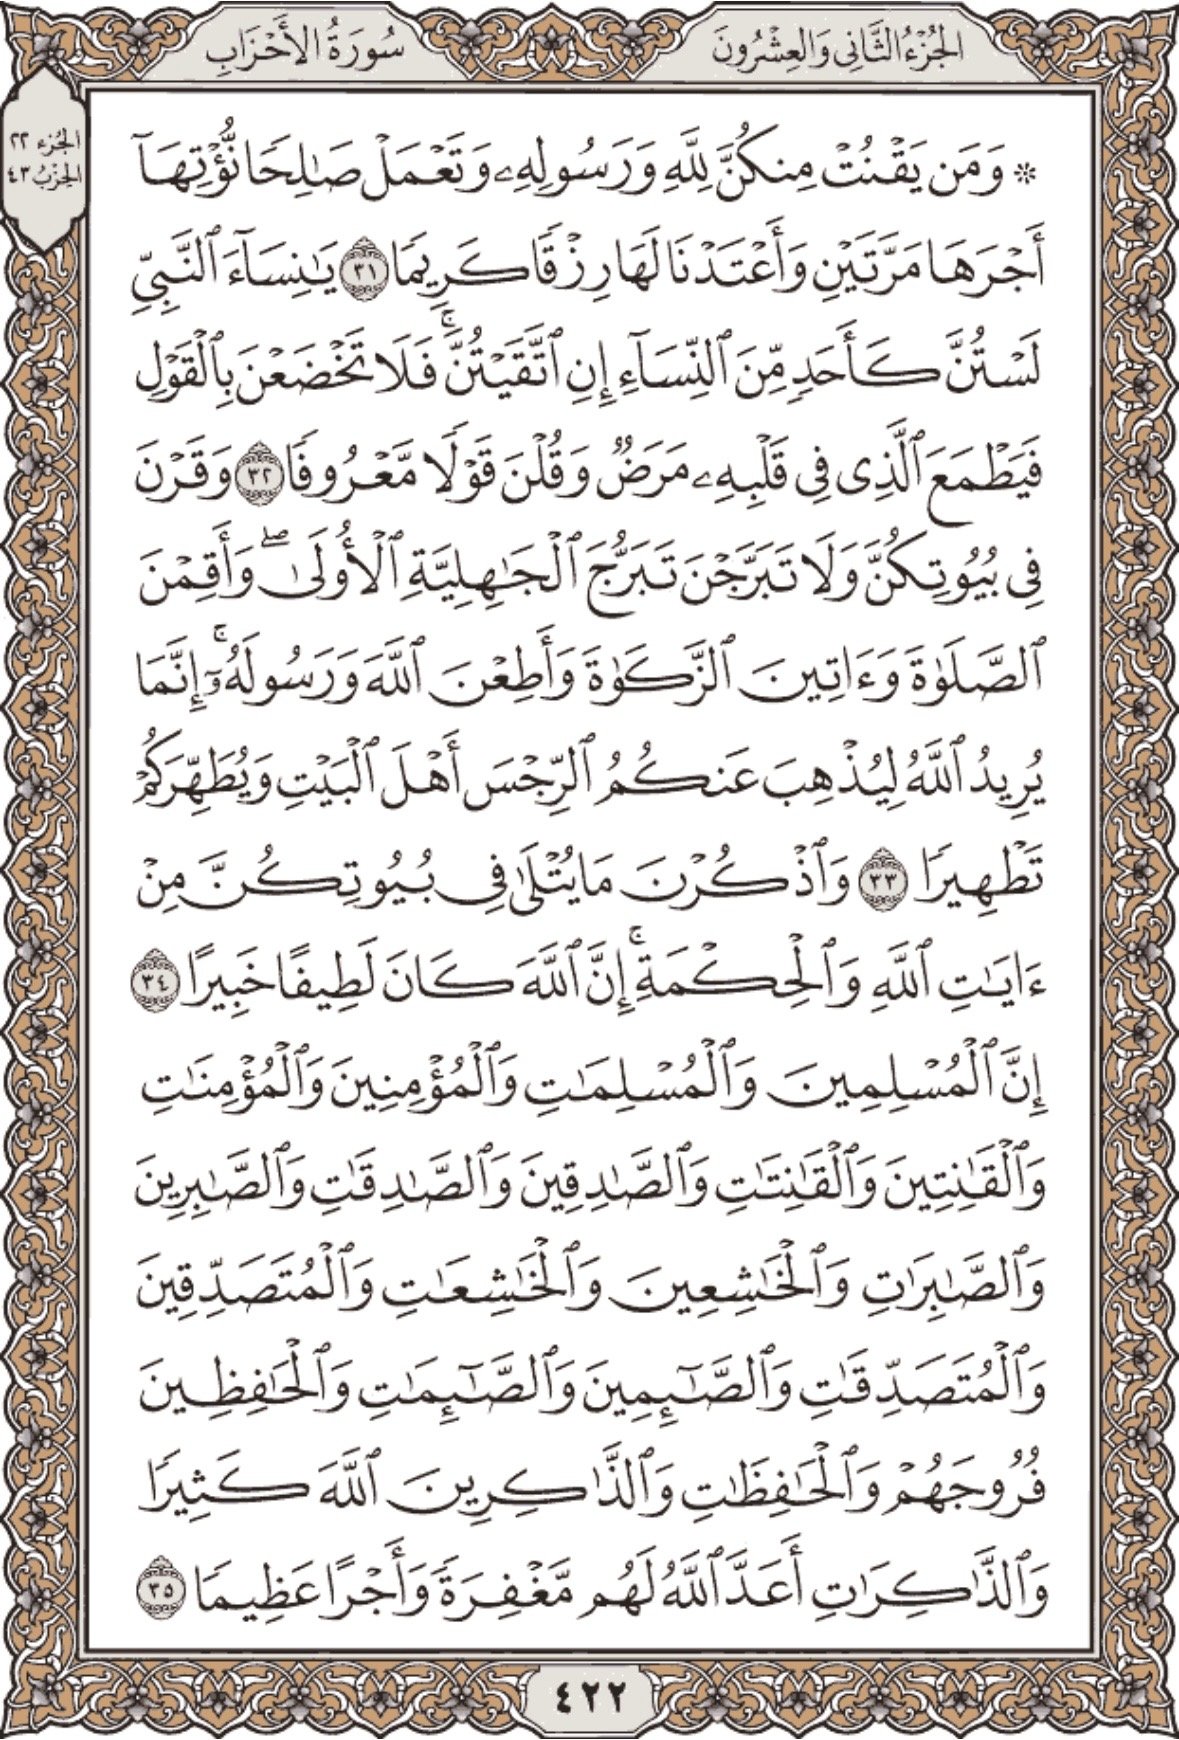 الجُزْءُ الثَّانِي وَالعِشْرُونَ
سُورَةُ الأَحْزَابِ
الجُزء ٢٢
الحِزبُ ٤٣
۞ وَمَن يَقْنُتْ مِنكُنَّ لِلَّهِ وَرَسُولِهِۦ وَتَعْمَلْ صَـٰلِحًا نُّؤْتِهَآ
أَجْرَهَا مَرَّتَيْنِ وَأَعْتَدْنَا لَهَا رِزْقًا كَرِيمًا ٣١ يَـٰنِسَآءَ ٱلنَّبِىِّ
لَسْتُنَّ كَأَحَدٍ مِّنَ ٱلنِّسَآءِ إِنِ ٱتَّقَيْتُنَّ ۚ فَلَا تَخْضَعْنَ بِٱلْقَوْلِ
فَيَطْمَعَ ٱلَّذِى فِى قَلْبِهِۦ مَرَضٌ وَقُلْنَ قَوْلًا مَّعْرُوفًا ٣٢ وَقَرْنَ
فِى بُيُوتِكُنَّ وَلَا تَبَرَّجْنَ تَبَرُّجَ ٱلْجَـٰهِلِيَّةِ ٱلْأُولَىٰ ۖ وَأَقِمْنَ
ٱلصَّلَوٰةَ وَءَاتِينَ ٱلزَّكَوٰةَ وَأَطِعْنَ ٱللَّهَ وَرَسُولَهُۥٓ ۚ إِنَّمَا
يُرِيدُ ٱللَّهُ لِيُذْهِبَ عَنكُمُ ٱلرِّجْسَ أَهْلَ ٱلْبَيْتِ وَيُطَهِّرَكُمْ
تَطْهِيرًا ٣٣ وَٱذْكُرْنَ مَا يُتْلَىٰ فِى بُيُوتِكُنَّ مِنْ
ءَايَـٰتِ ٱللَّهِ وَٱلْحِكْمَةِ ۚ إِنَّ ٱللَّهَ كَانَ لَطِيفًا خَبِيرًا ٣٤
إِنَّ ٱلْمُسْلِمِينَ وَٱلْمُسْلِمَـٰتِ وَٱلْمُؤْمِنِينَ وَٱلْمُؤْمِنَـٰتِ
وَٱلْقَـٰنِتِينَ وَٱلْقَـٰنِتَـٰتِ وَٱلصَّـٰدِقِينَ وَٱلصَّـٰدِقَـٰتِ وَٱلصَّـٰبِرِينَ
وَٱلصَّـٰبِرَٰتِ وَٱلْخَـٰشِعِينَ وَٱلْخَـٰشِعَـٰتِ وَٱلْمُتَصَدِّقِينَ
وَٱلْمُتَصَدِّقَـٰتِ وَٱلصَّـٰٓئِمِينَ وَٱلصَّـٰٓئِمَـٰتِ وَٱلْحَـٰفِظِينَ
فُرُوجَهُمْ وَٱلْحَـٰفِظَـٰتِ وَٱلذَّٰكِرِينَ ٱللَّهَ كَثِيرًا
وَٱلذَّٰكِرَٰتِ أَعَدَّ ٱللَّهُ لَهُم مَّغْفِرَةً وَأَجْرًا عَظِيمًا ٣٥
٤٢٢